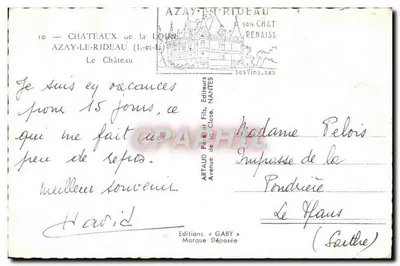 10 — CHATEAUX de la LOIRE
AZAY-LE-RIDEAU (I.-et-L.)
Le Château
AZAY-LE-RIDEAU
SON CHAT
RENAISS
SES VINS, SES
Je suis en vacances
pour 15 jours, ce
qui me fait un
peu de repos.
Meilleur souvenir
David
ARTAUD Père et Fils, Editeurs
Avenue de la Close, NANTES
Editions « GABY »
Marque Déposée
Madame Pelois
Impasse de la
Poudrière
Le Mans
(Sarthe)